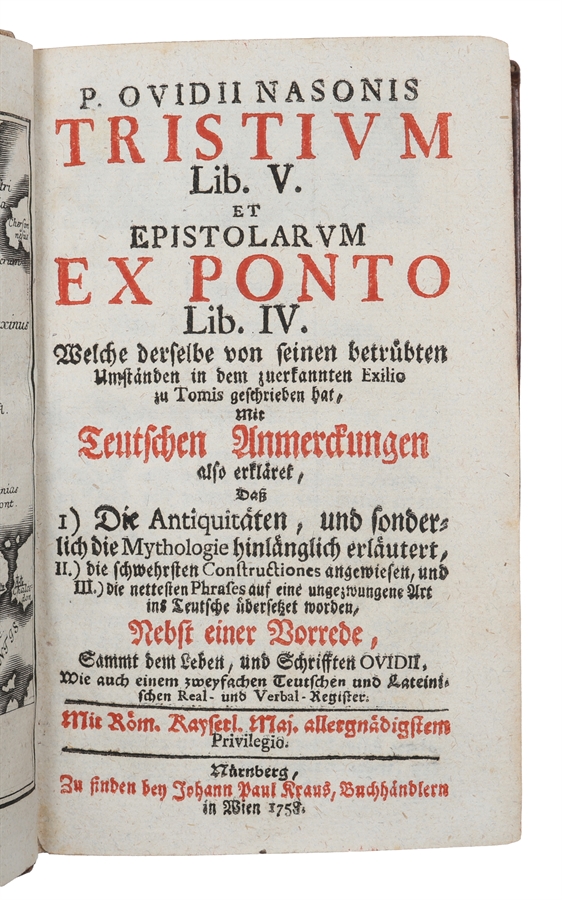 P. OVIDII NASONIS
TRISTIVM
Lib. V.
ET
EPISTOLARVM
EX PONTO
Lib. IV.
Welche derselbe von seinen betrübten
Umständen in dem zuerkannten Exilio
zu Tomis geschrieben hat,
Mit
Teutschen Anmerckungen
also erkläret,
Daß
1) Die Antiquitäten, und sonder-
lich die Mythologie hinlänglich erläutert,
II.) die schwehrsten Constructiones angewiesen, und
III.) die nettesten Phrases auf eine ungezwungene Art
ins Teutsche übersetzet worden,
Nebst einer Vorrede,
Sammt dem Leben, und Schrifften OVIDII,
Wie auch einem zweyfachen Teutschen und Lateini-
schen Real- und Verbal-Register.
Mit Röm. Kayserl. Maj. allergnädigstem
Privilegio.
Nürnberg,
Zu finden bey Johann Paul Kraus, Buchhändlern
in Wien 1758.
xinus